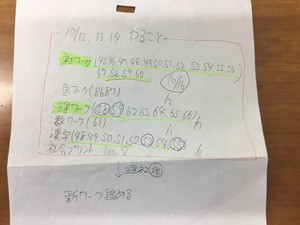 10/12, 13, 14 やること
社ワーク(45.46.47.48.49.50.51.52.53.54.55.56
57.58.59.60
10/16
国ワーク(86.87)
理ワーク(56 57 62.63.64.65.66)
数ワーク(61)
漢字(48.49.50.51.52 53 54 55)
社会プリント No.2
新ワーク進める